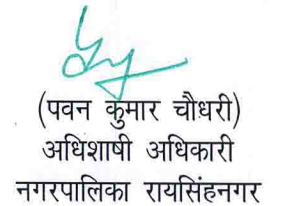 (पवन कुमार चौधरी)
अधिशाषी अधिकारी
नगरपालिका रायसिंहनगर